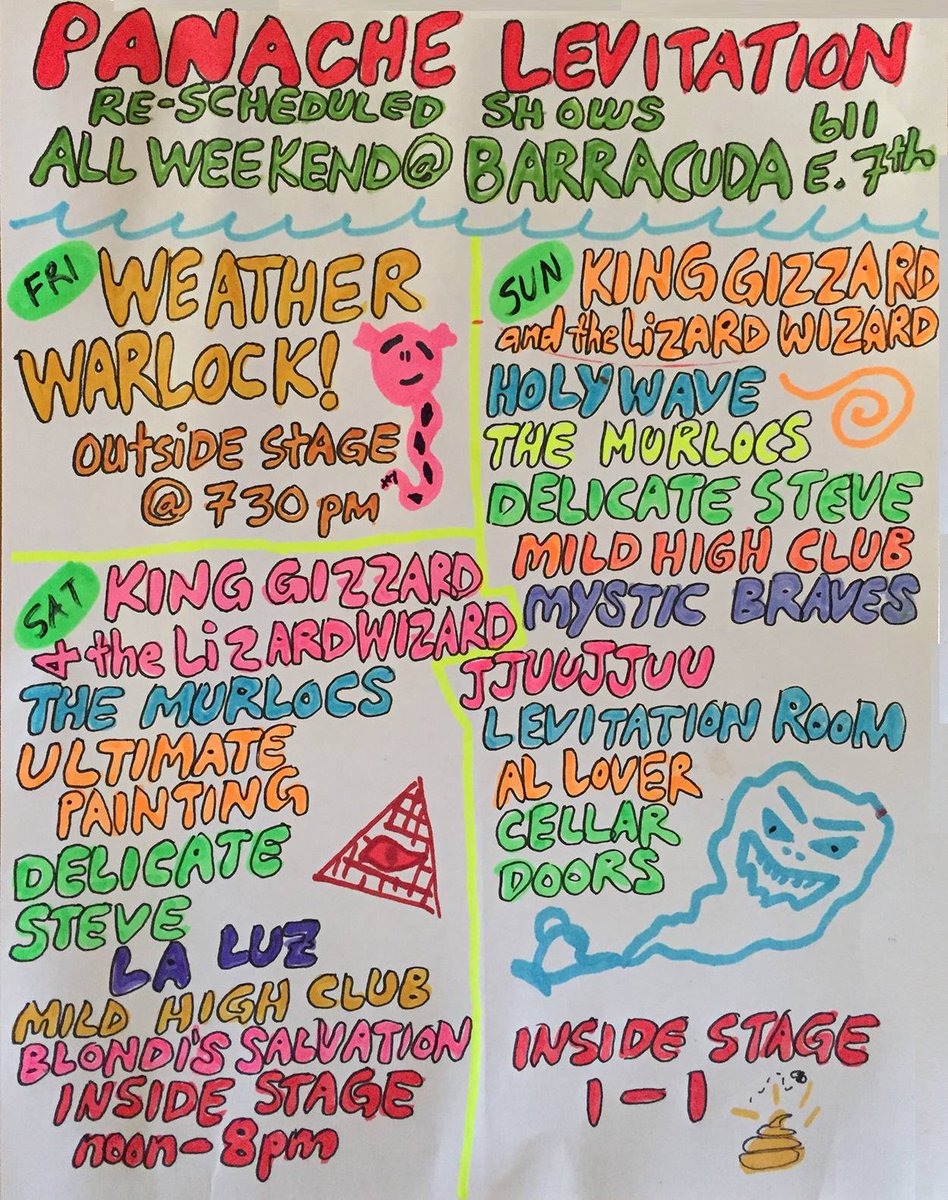 PANACHE LEVITATION
RE-SCHEDULED SHOWS
ALL WEEKEND@ BARRACUDA 611 E. 7th
FRI
WEATHER
WARLOCK!
OUtSIDE StAGE
@ 730 pm
SAT
KING GIZZARD
& the LiZARD WIZARD
THE MURLOCS
ULTIMATE
PAINTING
DELICATE
STEVE
LA LUZ
MILD HIGH CLUB
BLONDI'S SALVATION
INSIDE STAGE
noon-8pm
SUN
KING GIZZARD
and the LiZARD WIZARD
HOLY WAVE
THE MURLOCS
DELICATE STEVE
MILD HIGH CLUB
MYSTIC BRAVES
JJUUJJUU
LEVITATION ROOM
AL LOVER
CELLAR
DOORS
INSIDE STAGE
1-1